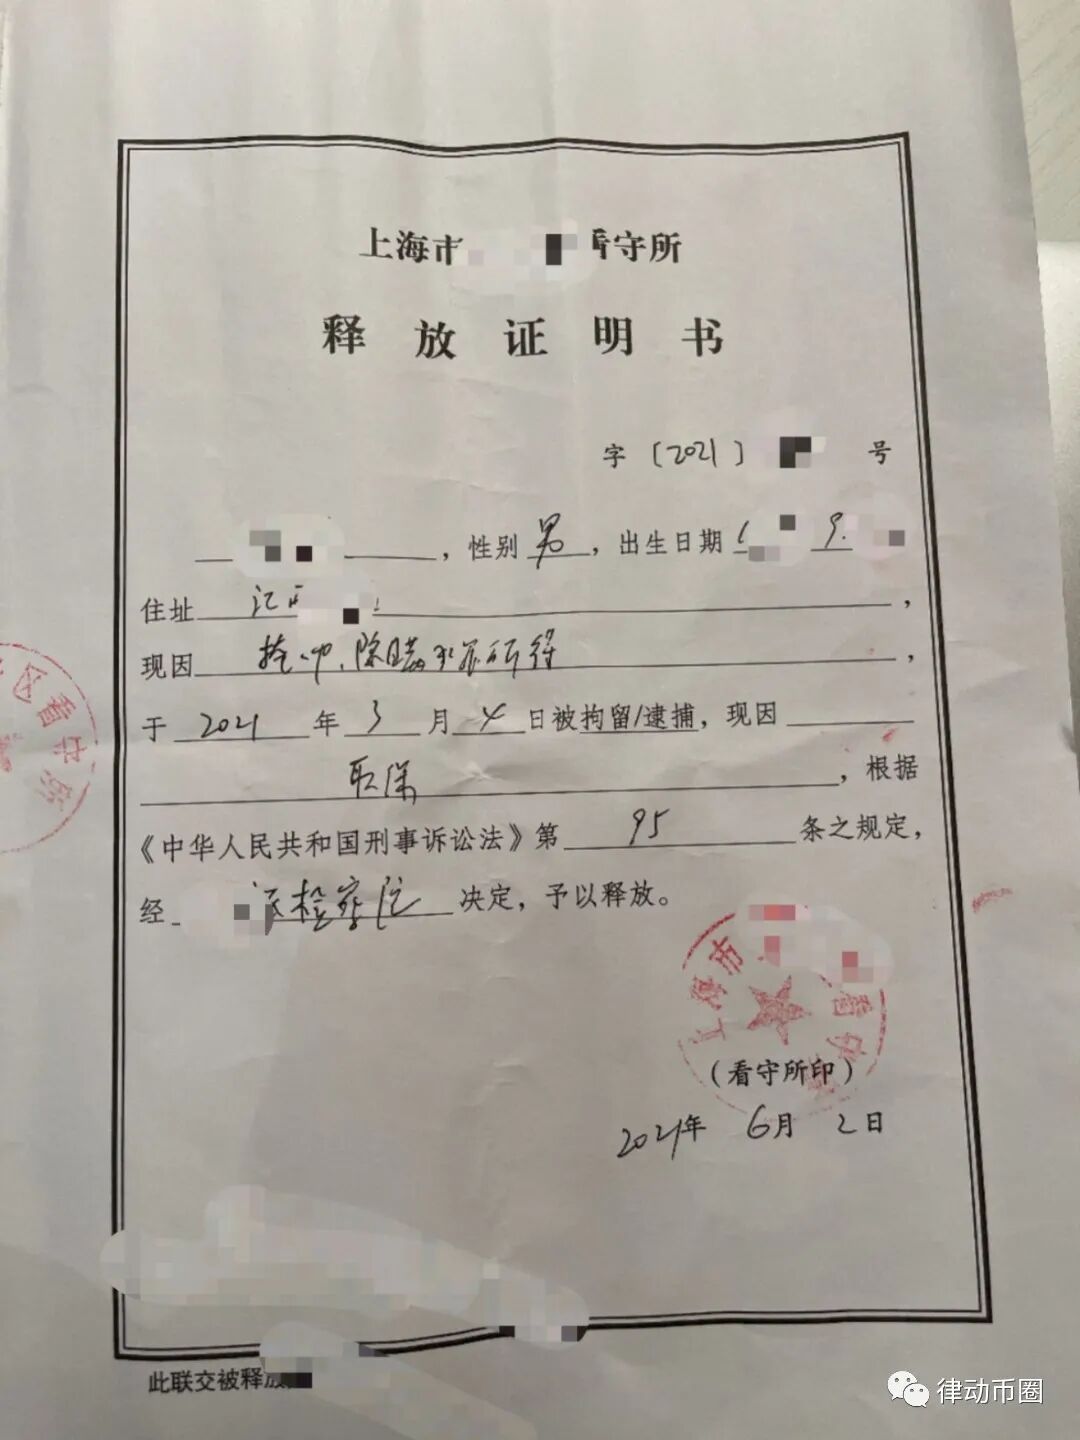 上海市 看守所
释放证明书
字〔2021〕 号
，性别 男 ，出生日期 9.
住址 江 ，
现因 掩饰、隐瞒犯罪所得 ，
于 2021 年 3 月 4 日被拘留/逮捕，现因
取保 ，根据
《中华人民共和国刑事诉讼法》第 95 条之规定，
经 区检察院 决定，予以释放。
上海市 看守所
（看守所印）
2021年 6月 2日
区看守所
此联交被释放
律动币圈